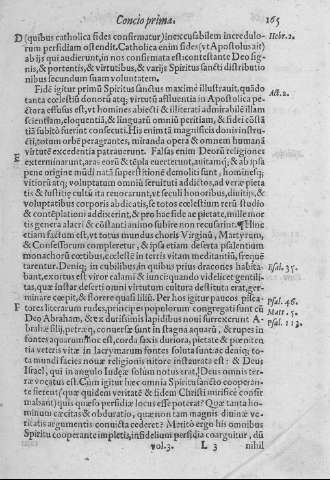 Concio prima. 165
D (quibus catholica fides confirmatur) inexcusabilem incredulo- Hebr.2.
rum perfidiam ostendit. Catholica enim fides (vt Apostolus ait)
ab ijs qui audierunt, in nos confirmata est: contestante Deo sig-
nis, & portentis, & virtutibus, & varijs Spiritus sancti distributio
nibus secundum suam voluntatem.
Fidē igitur primū Spiritus sanctus maximè illustrauit, quādo
tanta cœlestiū donorū atq; virtutū affluentia in Apostolica pe- Act.2.
ctora effusus est, vt homines abiecti & illiterati admirabilē illam
scientiam, eloquentiā, & linguarū omniū peritiam, & fidei cōstā
tiā subitò fuerint consecuti. His enim tā magnificis donis instru-
cti, totum orbē peragrantes, miranda opera & omnem humanā
virtutē excedentia patrauerunt. Falsas enim Deorū religiones
E exterminarunt, aras eorū & tēpla euerterunt, &
pene origine mūdi natā superstitionē demoliti sunt, hominesq;
vitiorū atq; voluptatum omniū seruituti addictos, ad veræ pieta
tis & iustitiæ cultū ita renocarunt, vt seculi honoribus, diuitijs, &
voluptatibus corporis abdicatis, se totos cœlestium rerū studio
& contēplationi addixerint, & pro hac fide ac pietate, mille mor
tis genera alacri & cōstanti animo subire non recusarint. ¶ Hinc
etiam factum est, vt totus mundus choris Virginū, Martyrum,
& Confessorum compleretur, & ipsa etiam deserta psalentium
monachorū cœtibus, cœlestē in terris vitam meditantiū, freque
tarentur. Deniq; in cubilibus, in quibus prius dracones habita- Psal.35.
bant, exortus est viror calami & iunci: quando videlicet gentili-
tas, quæ instar deserti omni virtutum cultura destituta erat, ger-
minare cœpit, & florere quasi lilium. Per hos igitur paucos pisca- Psal.46.
F tores literarum rudes, principes populorum congregati sunt cū Matt.5.
Deo Abraham, & ex durissimis lapidibus noui surrexerunt A- Psal.113.
brahæ filij, petræq; conuersæ sunt in stagna aquarū, & rupes in
fontes aquarum: hoc est, corda saxis duriora, pietate & pœniten
tia veteris vitæ in lacrymarum fontes soluta sunt: ac deniq; to-
ta mundi facies nouæ religionis nitore instaurata est: & Deus
Israel, qui in angulo Iudeæ solùm notus erat, Deus omnis ter-
ræ vocatus est. Cùm igitur hæc omnia Spiritu sancto cooperan-
te fierent (quæ quidem veritatē & fidem Christi mirificè confir
mabant) quis quæso perfidiæ locus esse poterat? Quæ tanta ho-
minum cæcitas & obduratio, quæ non tam magnis diuinæ ve-
ritatis argumentis conuicta cederet? Meritò ergo his omnibus
Spiritu cooperante impletis, infidelium perfidia coarguitur, dū
vol.3. L 3 nihil